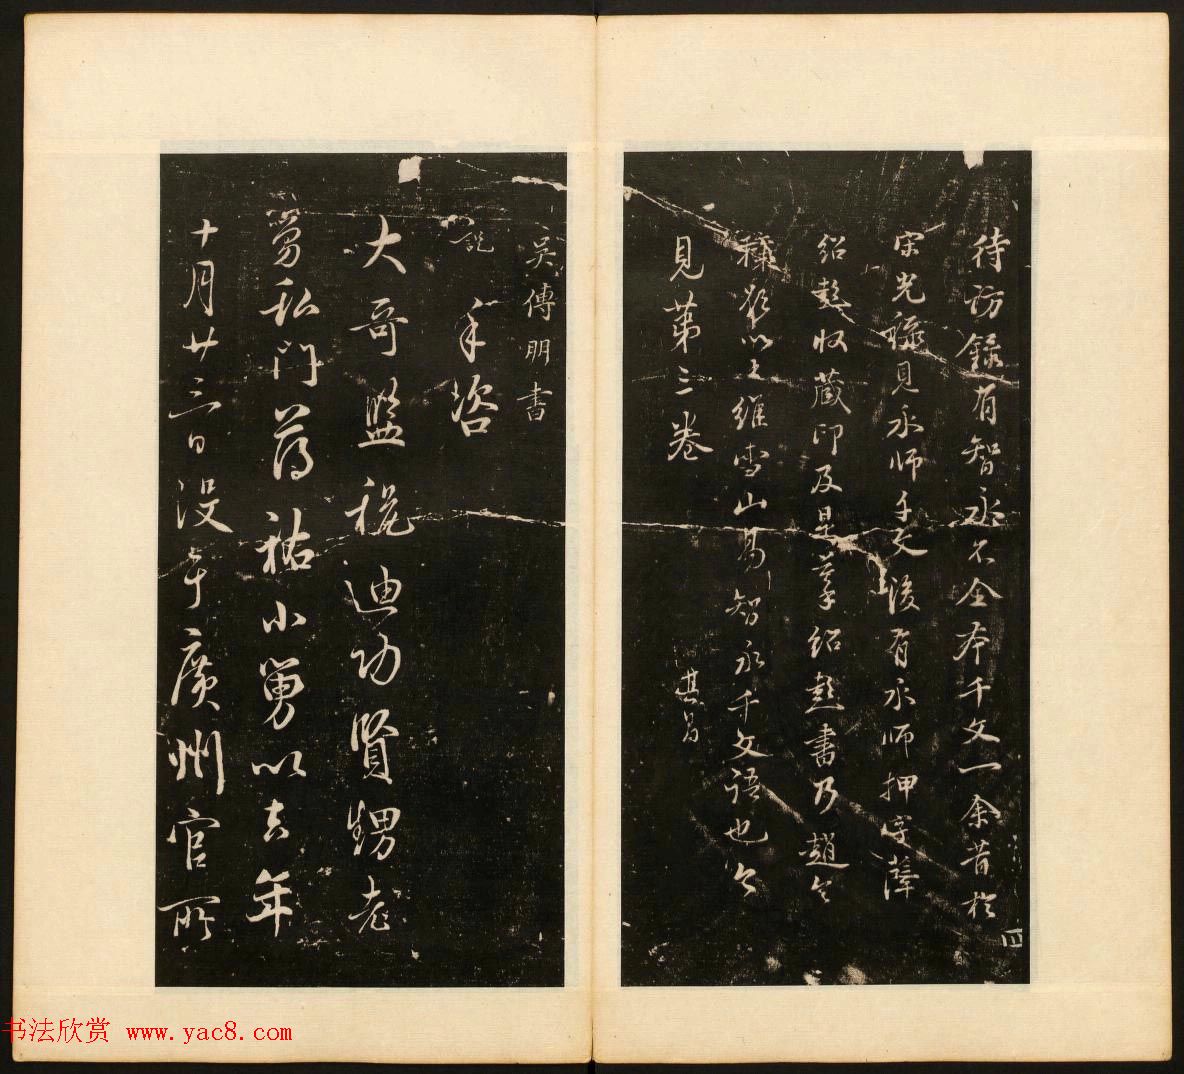 待訪錄有智永不全本千文一余昔於
宋光祿見永師千文後有永師押字薛
紹彭收藏印及是紹彭書乃趙令
穰以王維雪山易智永千文語也今
見第三卷
其昌
四
吳傅朋書
說手咨
大哥監稅迪功賢甥老
舅私門薄祐小舅以去年
十月廿三日没廣州官所
书法欣赏 www.yac8.com